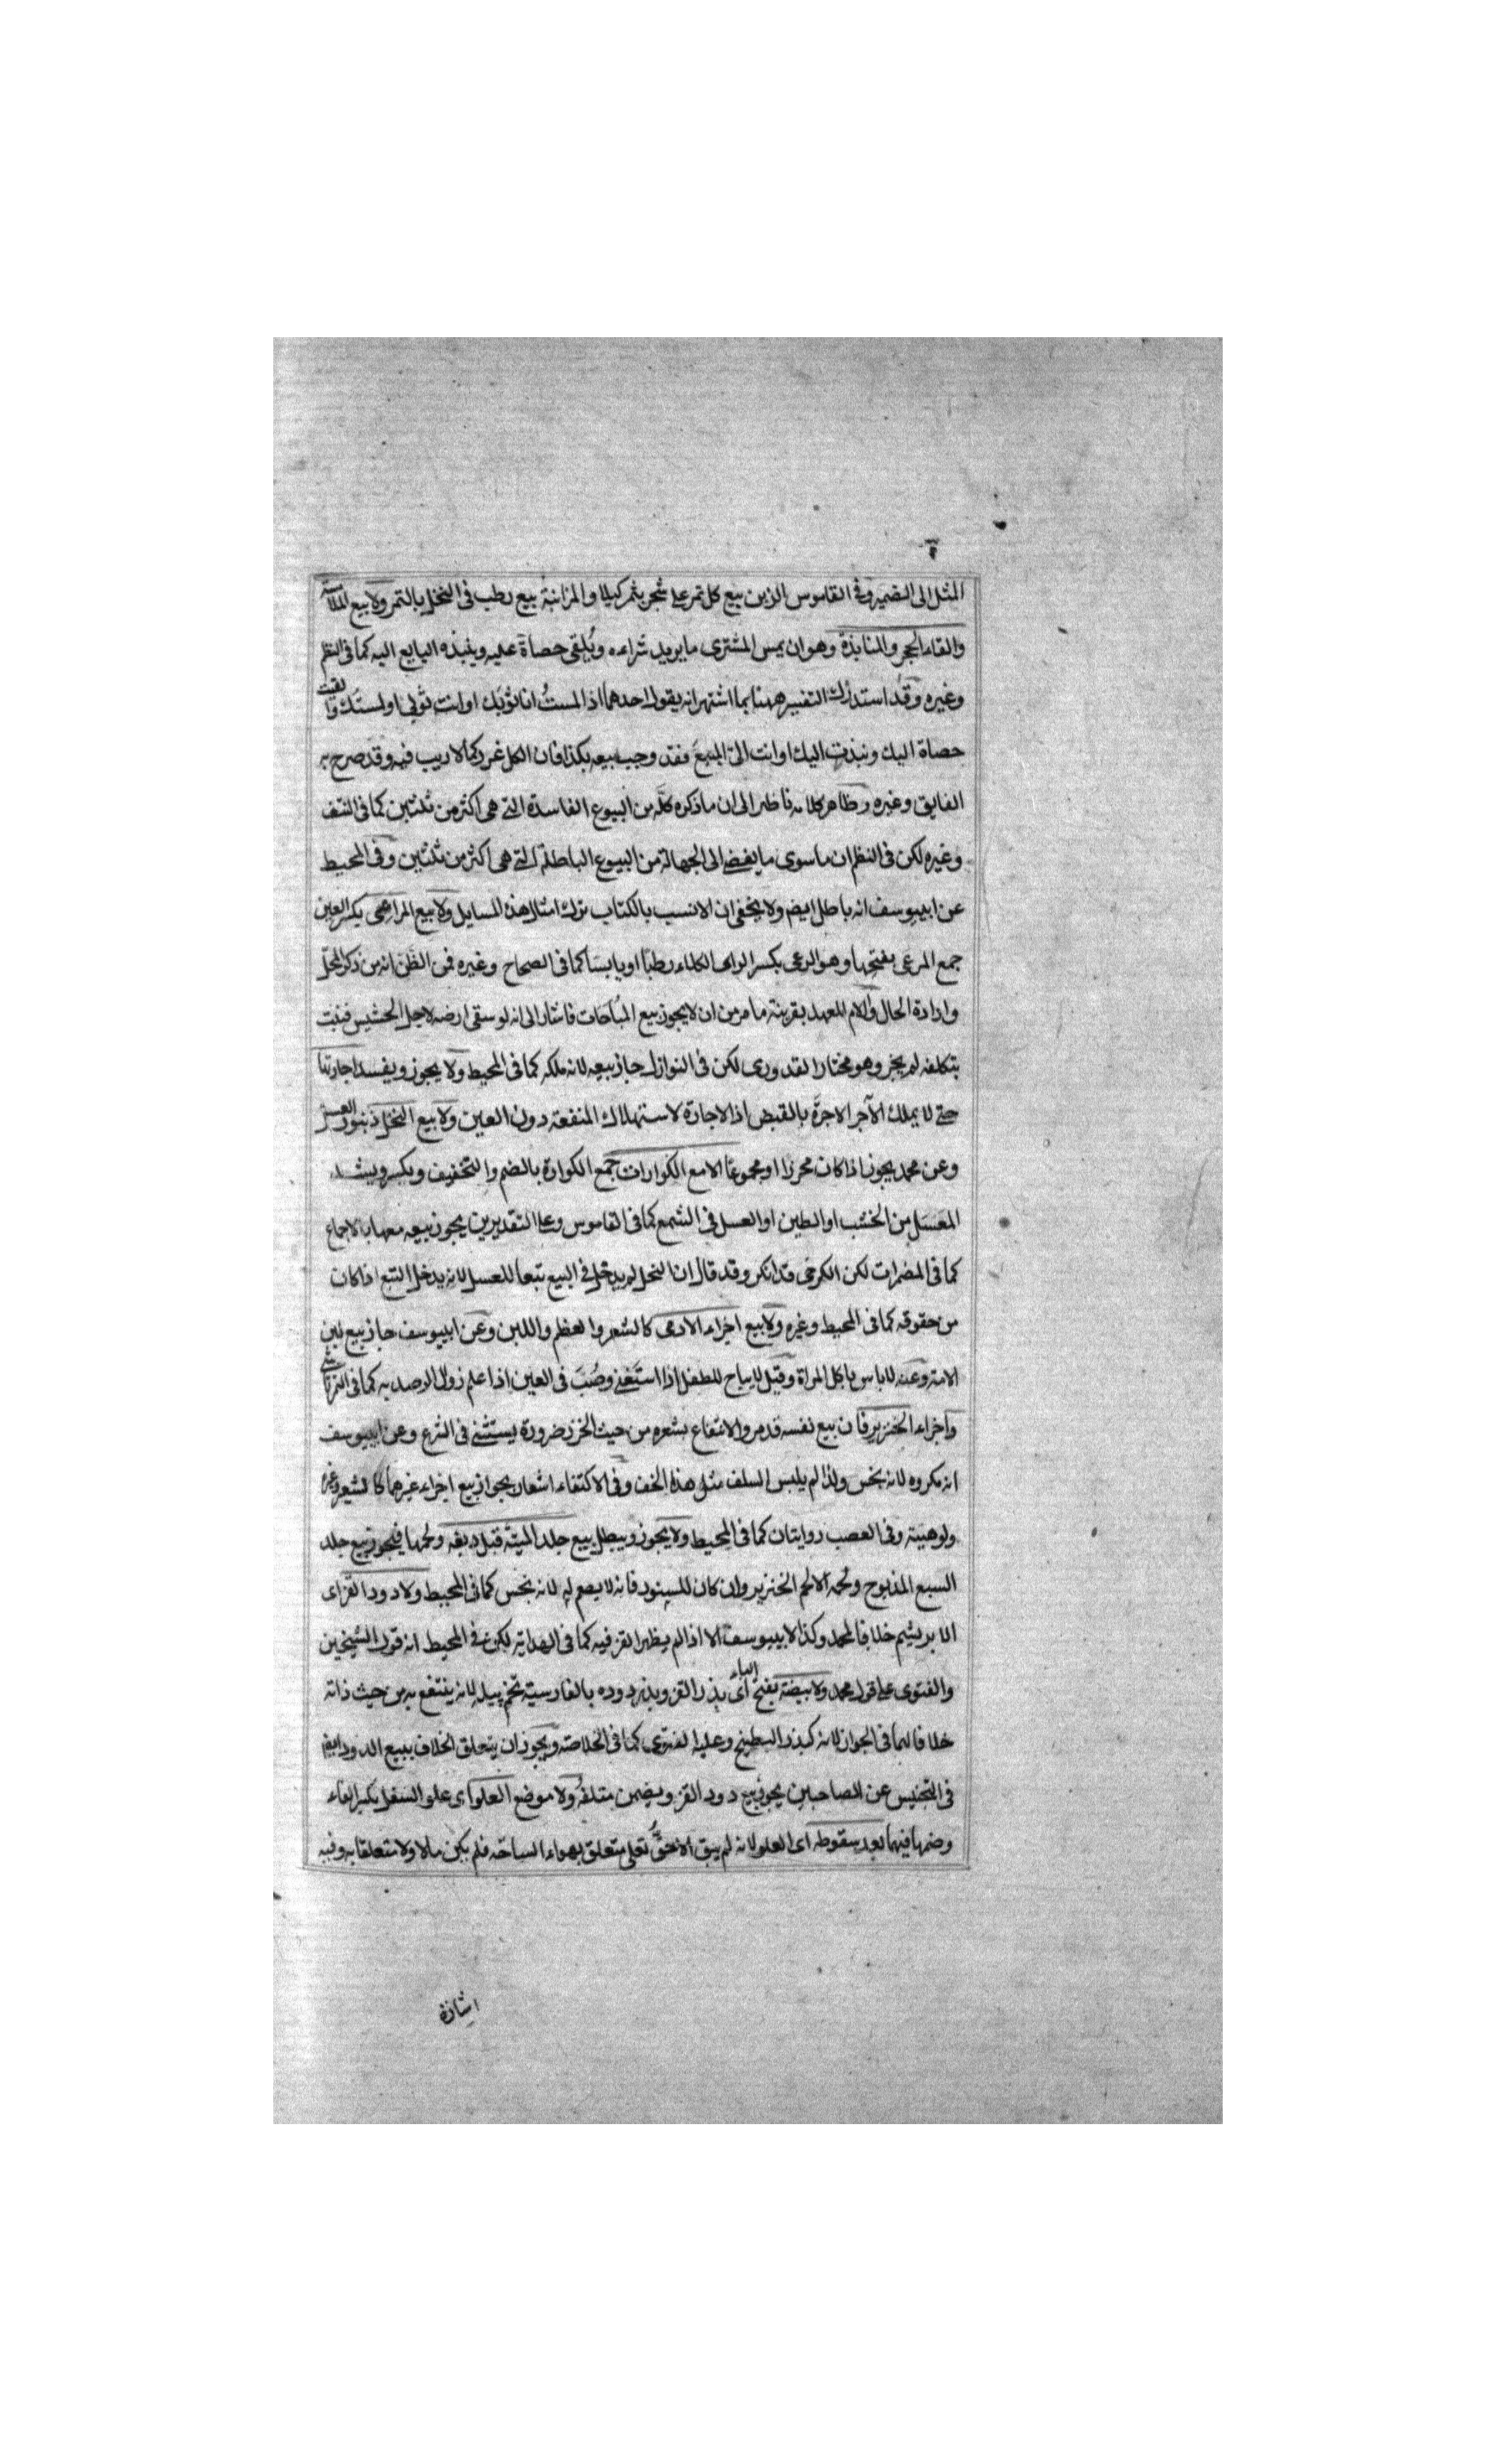 المثل الى الضمير وفى القاموس الزبن بيع كل تمر على شجر بثمر كيلا والمزابنة بيع رطب فى النخل بالتمر ولا بيع الملامسة
والقاء الحجر والمنابذة وهو ان يمس المشترى ما يريد شراءه ويلقى حصاة عليه وينبذه البايع اليه كما فى النظم
وغيره وقد استدرك التفسير ههنا بما اشتهر انه يقول احدهما اذا لمستُ انا ثوبك او انت ثوبى او لمستك والقيت
حصاة اليك ونبذت اليك او انت الىّ المبيعَ فقد وجب بيعه بكذا فان الكل غرر كما لا ريب فيه وقد صرح به
الفايق وغيره وظاهر كلامه ناظر الى ان ما ذكره كله من البيوع الفاسدة التى هى اكثر من ثلثين كما فى النتف
وغيره لكن فى النظم ان ما سوى ما يفضى الى الجهالة من البيوع الباطلة التى هى اكثر من ثلثين وفى المحيط
عن ابييوسف انه باطل ايضا ولا يخفى ان الانسب بالكتاب ترك امثال هذه المسايل ولا بيع المراعى بكسر العين
جمع المرعى بفتحها وهو الرعى بكسر الراء الكلاء رطبا او يابسا كما فى الصحاح وغيره فمن الظن انه من ذكر المحل
وارادة الحال واللام للعهد بقرينة ما مر من ان لا يجوز بيع المباحات فاشار الى انه لو سقى ارضه لاجل الحشيش فنبت
بتكلفه لم يجز وهو مختار القدورى لكن فى النوازل جاز بيعه لانه ملكه كما فى المحيط ولا يجوز ويفسد اجارتها
حتى لا يملك الآجر الاجرة بالقبض اذ الاجارة لاستهلاك المنفعة دون العين ولا بيع النحل زنبور العسل
وعن محمد يجوز اذا كان محرزا او مجموعا الا مع الكوارات جمع الكوارة بالضم والتخفيف وبكسر ويشدد
المعسل من الخشب او الطين او العسل فى الشمع كما فى القاموس وعلى التقديرين يجوز بيعه معها بالاجماع
كما فى المضمرات لكن الكرخى قد انكر وقد قال ان النحل لم يدخل فى البيع تبعا للعسل لانه يدخل التبع اذا كان
من حقوقه كما فى المحيط وغيره ولا بيع اجزاء الادمى كالشعر والعظم واللبن وعن ابييوسف جاز بيع لبن
الامة وعنه لا باس باكل المراة وقيل لا يباح للطفل اذا استغنى وصُبّ فى العين اذا علم زوال الرمد به كما فى التمرتاشى
واجزاء الخنزير فان بيع نفسه قد مر والانتفاع بشعره من حيث الخرز ضرورة يستثنى فى الشرع وعن ابييوسف
انه مكروه لانه نجس ولذا لم يلبس السلف مثل هذا الخف وفى الاكتفاء اشعار بجواز بيع اجزاء غيرهما كالشعر وغيره
ولو ميتة وفى العصب روايتان كما فى المحيط ولا يجوز ويبطل بيع جلد الميتة قبل دبغه ولحمها فيجوز بيع جلد
السبع المذبوح ولحمه الا لحم الخنزير وان كان للسنور فانه لا يصح له لانه نجس كما فى المحيط ولا دود القز اى
الابريشم خلافا لمحمد وكذا لابييوسف الا اذا لم يظهر القز فيه كما فى الهداية لكن فى المحيط انه قول الشيخين
والفتوى على قول محمد ولا بيضة بفتح الباء اى بذر القز وبذر دوده بالفارسية تخم پيله لانه ينتفع به من حيث ذاته
خلافا لهما فى الجواز لانه كبذر البطيخ وعليه الفتوى كما فى الخلاصة ويجوز ان يتعلق الخلاف ببيع الدود ايضا
فى التجنيس عن الصاحبين يجوز بيع دود القز ويضمن متلفه ولا موضع العلو اى علو السفل بكسر الفاء
وضمها فيهما بعد سقوطه اى العلو لانه لم يبق الا حق تعلى متعلق بهواء الساحة فلم يكن مالا ولا متعلقا به وفيه
اشارة